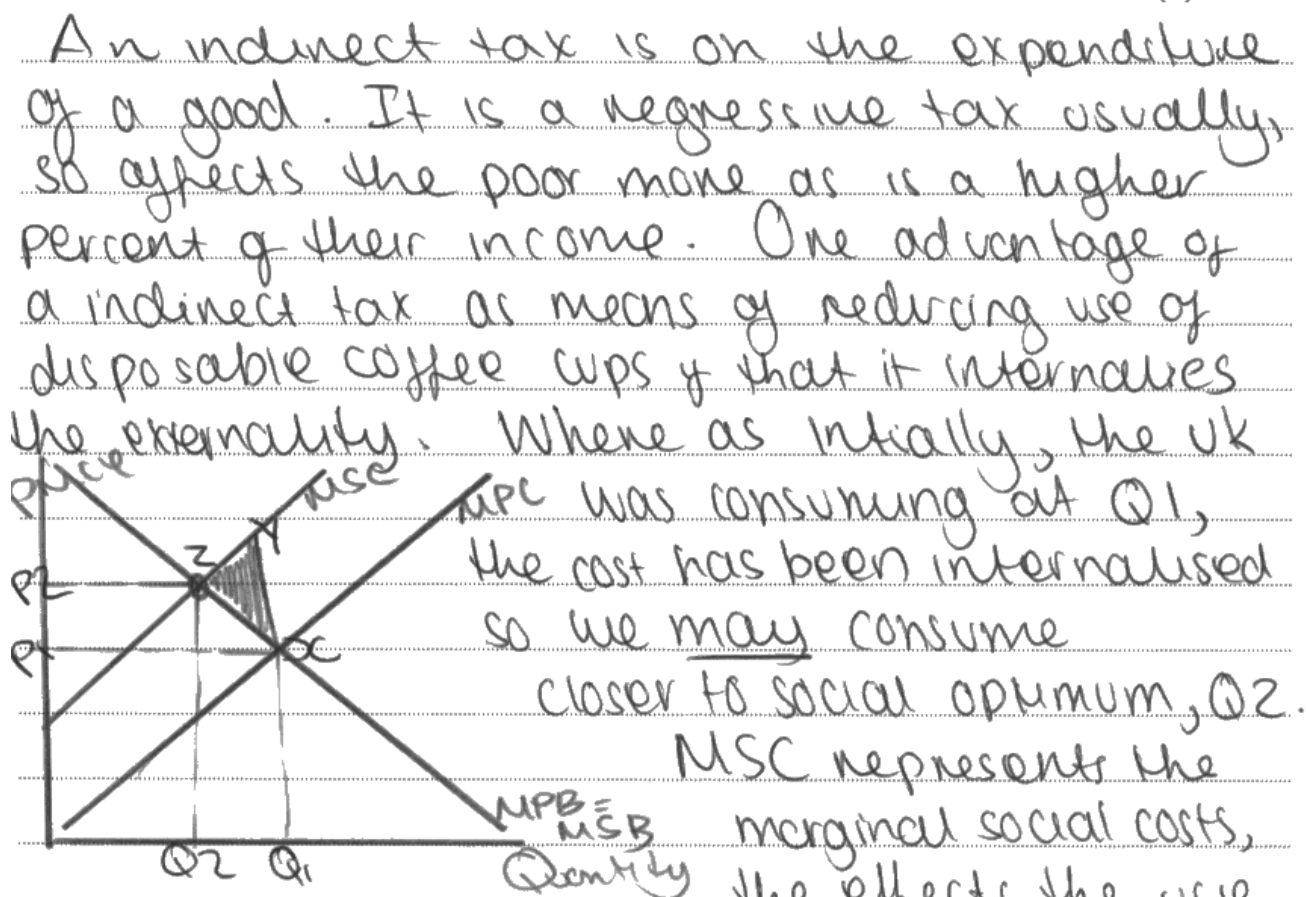 An indirect tax is on the expenditure
of a good. It is a regressive tax usually,
so affects the poor more as is a higher
percent of their income. One advantage of
a indirect tax as means of reducing use of
disposable coffee cups is that it internalies
the externality. Where as intially, the UK
Price
MSC
MPC
was consuming at Q1,
Z
Y
the cost has been internalised
P2
so we may consume
P1
x
closer to social optimum, Q2.
MSC represents the
MPB =
MSB
marginal social costs,
Q2 Q1
Quantity
the effects the